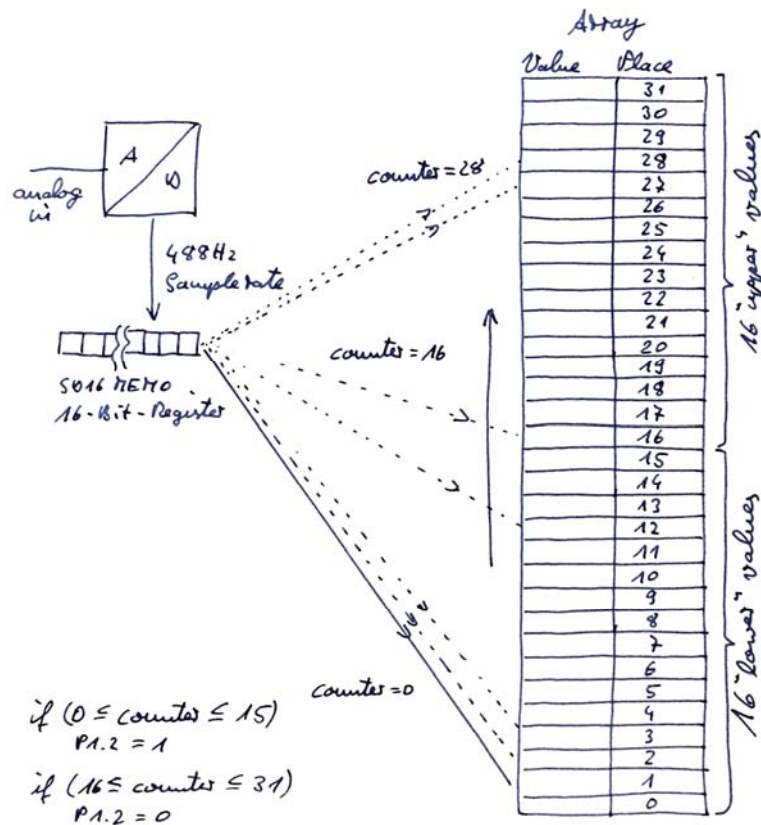 Array
Value Place
31
30
29
28
27
26
25
24
23
22
21
20
19
18
17
16
15
14
13
12
11
10
9
8
7
6
5
4
3
2
1
0
16 "upper" values
16 "lower" values
A
D
analog
in
488Hz
Sample rate
SD16MEM0
16-Bit-Register
counter=28
counter=16
counter=0
if (0 ≤ counter ≤ 15)
P1.2 = 1
if (16 ≤ counter ≤ 31)
P1.2 = 0